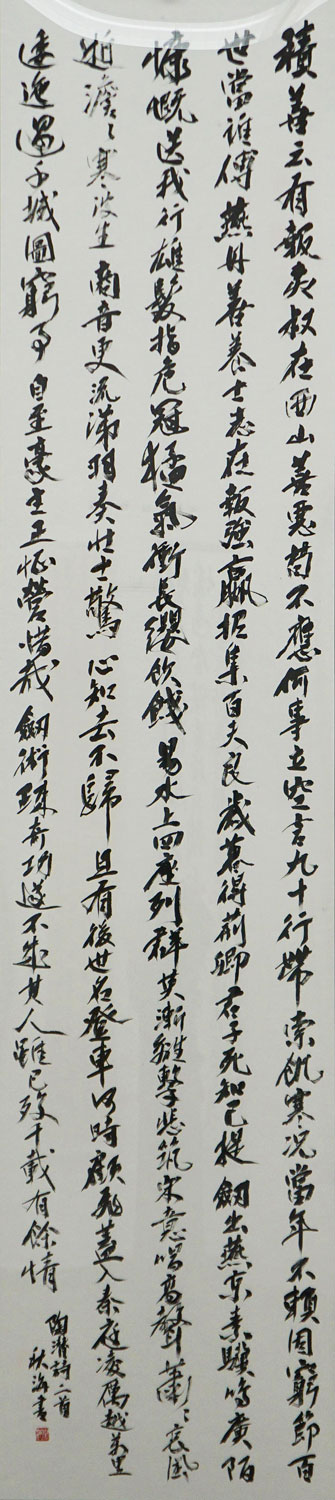 積善云有報夷叔在西山善惡苟不應何事立空言九十行帶索飢寒況當年不賴固窮節百
世當誰傳燕丹善養士志在報強嬴招集百夫良歲暮得荊卿君子死知己提劍出燕京素驥鳴廣陌
慷慨送我行雄髮指危冠猛氣衝長纓飲餞易水上四座列群英漸離擊悲筑宋意唱高聲蕭〻哀風
逝澹〻寒波生商音更流涕羽奏壯士驚心知去不歸且有後世名登車何時顧飛蓋入秦庭凌厲越萬里
逶迤過千城圖窮事自至豪主正怔營惜哉劍術疎奇功遂不成其人雖已歿千載有餘情
陶潛詩二首
秋 書